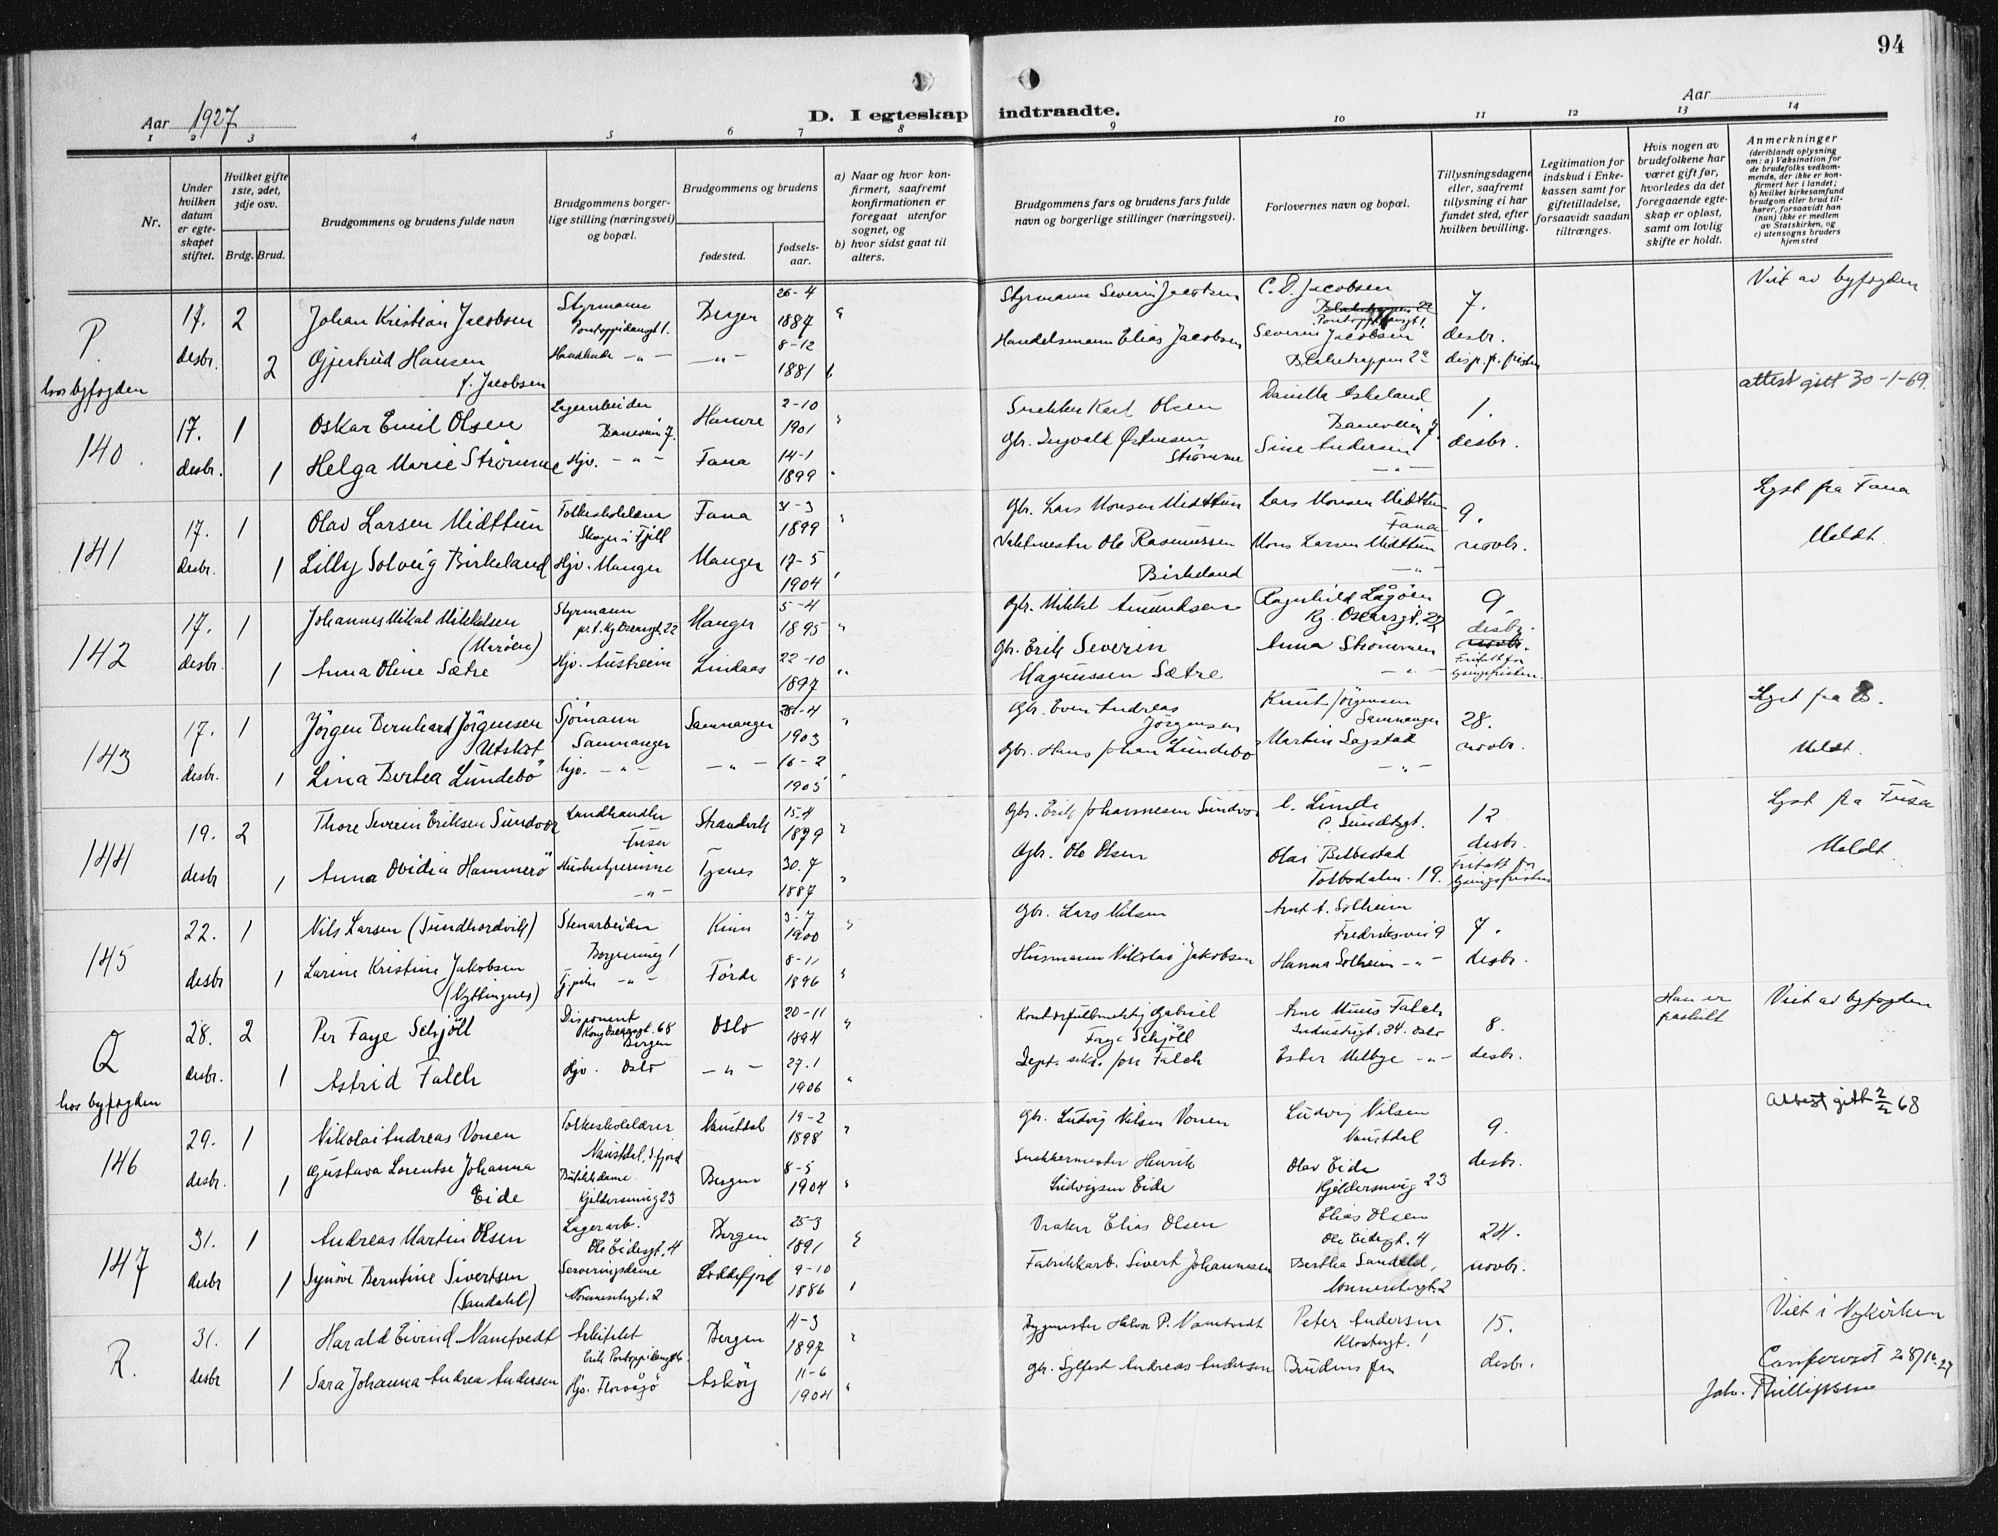 94
Aar 1927
D. I egteskap indtraadte.
Aar
1 2 3 4 5 6 7 8 9 10 11 12 13 14
Nr.
Under hvilken datum er egteskapet stiftet.
Hvilket gifte 1ste, 2det, 3dje osv.
Brdg. Brud.
Brudgommens og brudens fulde navn
Brudgommens borgerlige stilling (næringsvei) og bopæl.
Brudgommens og brudens
fødested.
fødselsaar.
a) Naar og hvor konfirmert, saafremt konfirmationen er foregaat utenfor sognet, og
b) hvor sidst gaat til alters.
Brudgommens fars og brudens fars fulde navn og borgerlige stillinger (næringsvei).
Forlovernes navn og bopæl.
Tillysningsdagene eller, saafremt tillysning ei har fundet sted, efter hvilken bevilling.
Legitimation for indskud i Enkekassen samt for giftetilladelse, forsaavidt saadan tiltrænges.
Hvis nogen av brudefolkene har været gift før, hvorledes da det foregaaende egteskap er opløst, samt om lovlig skifte er holdt.
Anmerkninger
(deriblandt oplysning om: a) Vaksination for de brudefolks vedkommende, der ikke er konfirmert her i landet; b) hvilket kirkesamfund brudgom eller brud tilhører, forsaavidt han (hun) ikke er medlem av Statskirken, og c) utensogns bruders hjemsted
P.
hos byfogden
17. desbr. 2
Johan Kristian Jacobsen
Styrmann Pontoppidansgt 1.
Bergen
26-4 1887
Styrmann Severin Jacobsen
C. D. Jacobsen
Pontoppidansgt 1.
7. desbr.
Viet av byfogden
2
Gjertrud Hansen f. Jacobsen
-"-
8-12 1881
Handelsmann Elias Jacobsen
Severin Jacobsen
Bleketrappen 2a
disp. f. fristen
140.
17. desbr. 1
Oskar Emil Olsen
Lagerarbeider Baneveien 7.
Hamre
2-10 1901
Snekker Karl Olsen
Daniella Eskeland
Baneveien 7.
1. desbr.
attest gitt 30-1-69.
1
Helga Marie Strömme
Hjv. -"-
Fana
14-1 1899
Gbr. Ingvald Östensen Strömme
Sine Andersen
-"-
141
17. desbr. 1
Olav Larsen Midttun
Folkeskolelærer Skoge i Fjell
Fana
31-3 1899
Gbr. Lars Monsen Midttun
Lars Monsen Midttun Fana
9. novbr.
Lyst fra Fana
Meldt.
1
Lilly Solveig Birkeland
Hjv. Manger
Manger
17-5 1904
Vaktmester Ole Rasmussen Birkeland
Mons Larsen Midttun
-"-
142
17. desbr. 1
Johannes Mikal Mikkelsen (Marøen)
Styrmann p.t. Kg Oscarsgt. 22
Manger
5-4 1895
Gbr. Mikkel Amundsen
Ragnhild Lågöen
Kg. Oscarsgt. 22
9. desbr.
novbr.
Fritatt for lysingsfristen.
1
Anna Oline Sætre
Hjv. Austreim
Lindaas
22-10 1897
Gbr. Erik Severin Magnussen Sætre
Anna Strömmen
-"-
143
17. desbr. 1
Jörgen Bernhard Jörgensen Utskot
Sjömann Samnanger
Samnanger
28-4 1903
Gbr. Even Andreas Jörgensen
Knut Jörgensen
Samnanger
28. novbr.
Lyst fra S.
Meldt.
1
Lina Bertea Lundebö
Hjv. -"-
-"-
16-2 1905
Gbr. Hans Johan Lundebö
Martin Lagstad
-"-
144
19. desbr 2
Thore Severin Eriksen Sundvor
Landhandler Fusa
Strandvik
15.4 1879
Gbr. Erik Johannesen Sundvor
C. Lunde
C. Sundtsgt.
12 desbr.
Fritatt for lysingsfristen
Lyst fra Fusa
Meldt.
1
Anna Ovidia Hammerö
Husbestyrerinne -"-
Tysnes
30.7 1887
Gbr. Ole Olsen
Olai Bellestad
Tolbodalm. 19.
145
22. desbr 1
Nils Larsen (Sundhordvik)
Stenarbeider
Kinn
3-7 1900
Gbr. Lars Nilsen
Arnt A. Solheim
Fredriksvei 9
7. desbr.
1
Larine Kristine Jakobsen (Nyttingnes)
Tj.pike -"-
Förde
8-11 1896
Husmann Nikolai Jakobsen
Hanna Solheim -"-
Q
hos byfogden
28. desbr. 2
Per Faye Schjöll
Disponent Kong Oscarsgt. 68 Bergen
Oslo
20-11 1894
Kontorfullmektig Gabriel Faye Schjöll
Arne Munis Falch
Industrigt. 34. Oslo
8. desbr.
Han er fraskilt
Viet av byfogden
1
Astrid Falch
Hjv. Oslo
-"-
27.1 1906
Dept. sekr. Jon Falch
Ester Melbye -"-
146
29. desbr. 1
Nikolai Andreas Vonen
Folkeskolelærer Naustdal, S.fjord
Naustdal
19-2 1898
Gbr. Ludvig Nilsen Vonen
Ludvig Nilsen
Naustdal
9. desbr.
Attest gitt 2/2 68
1
Gustava Lorentse Johanna Eide
Butikkdame Kjeldersmug 23
Bergen
8-5 1904
Snekkermester Henrik Ludvigsen Eide
Olav Eide
Kjeldersmug 23
147
31. desbr 1
Andreas Martin Olsen
Lagerarb. Ole Eidesgt. 4
Bergen
25-3 1891
Vraker Elias Olsen
Elias Olsen
Ole Eidesgt. 4
24. novbr.
1
Synöve Berntine Sivertsen (Sandahl)
Serveringsdame Nonnestergt. 2
Loddefjord
9-10 1886
Fabrikkarb. Sivert Johannesen
Berthea Sandahl,
Nonnestergt. 2
R.
31. desbr 1
Harald Eivind Namtvedt
Arkitekt Erik Pontoppidansgt
Bergen
11-3 1897
Bygmester Halvor P. Namtvedt
Peter Andersen
Klostergt. 1
15. desbr.
Viet i Nykirken
1
Sara Johanna Andrea Andersen
Hjv. Florvåg
Asköy
11-6 1904
Gbr. Sylfest Andreas Andersen
Brudens far
Conferert 28/12 27
Joh. Phillipsen